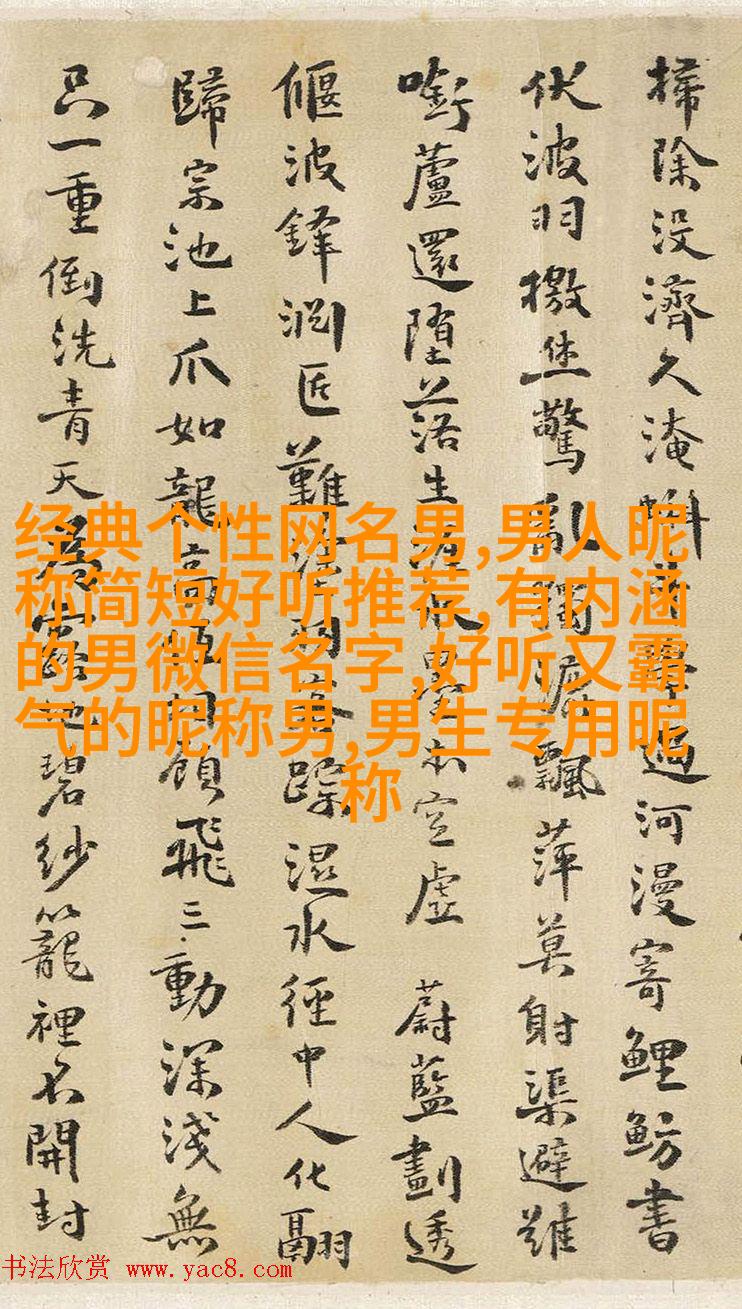 掃除没濟久淹過河漫寄鯉魴書
伏波羽檄坐驚亂獨飄萍莫射渠避
蘆還墮落生空虛 蔚藍劃透
偃波鋒匠難蹤濕水徑中人化翮
歸宗池上爪如龍高顧飛三動深淺無
只一重倒洗青天為露地碧紗籠裡不開封
经典个性网名男,男人昵
称简短好听推荐,有内涵
的男微信名字,好听又霸
气的昵称男,男生专用昵
称
书法欣赏 www.yac8.com